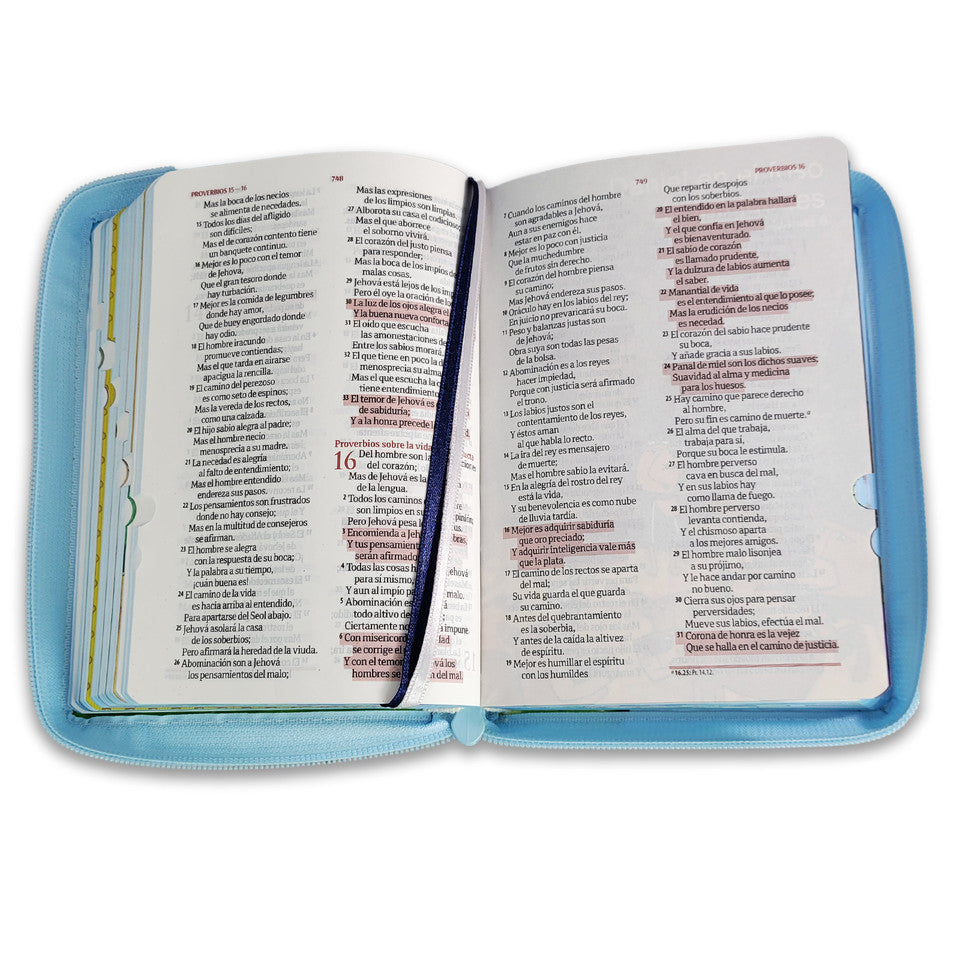 PROVERBIOS 15—16
748
Mas la boca de los necios
se alimenta de necedades.
15 Todos los días del afligido
son difíciles;
Mas el de corazón contento tiene
un banquete continuo.
16 Mejor es lo poco con el temor
de Jehová,
Que el gran tesoro donde
hay turbación.
17 Mejor es la comida de legumbres
donde hay amor,
Que de buey engordado donde
hay odio.
18 El hombre iracundo
promueve contiendas;
Mas el que tarda en airarse
apacigua la rencilla.
19 El camino del perezoso
es como seto de espinos;
Mas la vereda de los rectos,
como una calzada.
20 El hijo sabio alegra al padre;
Mas el hombre necio
menosprecia a su madre.
21 La necedad es alegría
al falto de entendimiento;
Mas el hombre entendido
endereza sus pasos.
22 Los pensamientos son frustrados
donde no hay consejo;
Mas en la multitud de consejeros
se afirman.
23 El hombre se alegra
con la respuesta de su boca;
Y la palabra a su tiempo,
¡cuán buena es!
24 El camino de la vida
es hacia arriba al entendido,
Para apartarse del Seol abajo.
25 Jehová asolará la casa
de los soberbios;
Pero afirmará la heredad de la viuda.
26 Abominación son a Jehová
los pensamientos del malo;
Mas las expresiones
de los limpios son limpias.
27 Alborota su casa el codicioso
Mas el que aborrece
el soborno vivirá.
28 El corazón del justo piensa
para responder;
Mas la boca de los impíos
malas cosas.
29 Jehová está lejos de los
Pero él oye la oración de
30 La luz de los ojos alegra el
Y la buena nueva conforta
31 El oído que escucha
las amonestaciones de
Entre los sabios morará.
32 El que tiene en poco la
menosprecia su alma;
Mas el que escucha la
tiene entendimiento
33 El temor de Jehová es
de sabiduría;
Y a la honra precede
Proverbios sobre la vida
16 Del hombre son
del corazón;
Mas de Jehová es
de la lengua.
2 Todos los caminos
son limpios en su
Pero Jehová pesa
3 Encomienda a
Y tus pensamient
serán afirmado
4 Todas las cosas
para sí mismo,
Y aun al impío
5 Abominación es
todo altivo de
Ciertamente no impune.
6 Con misericord dad
se corrige el
Y con el temor los
hombres se del mal.
749
PROVERBIOS 16
7 Cuando los caminos del hombre
son agradables a Jehová,
Aun a sus enemigos hace
estar en paz con él.
8 Mejor es lo poco con justicia
Que la muchedumbre
de frutos sin derecho.
9 El corazón del hombre piensa
su camino;
Mas Jehová endereza sus pasos.
10 Oráculo hay en los labios del rey;
En juicio no prevaricará su boca.
11 Peso y balanzas justas son
de Jehová;
Obra suya son todas las pesas
de la bolsa.
12 Abominación es a los reyes
hacer impiedad,
Porque con justicia será afirmado
el trono.
13 Los labios justos son el
contentamiento de los reyes,
Y éstos aman
al que habla lo recto.
14 La ira del rey es mensajero
de muerte;
Mas el hombre sabio la evitará.
15 En la alegría del rostro del rey
está la vida,
Y su benevolencia es como nube
de lluvia tardía.
16 Mejor es adquirir sabiduría
que oro preciado;
Y adquirir inteligencia vale más
que la plata.
17 El camino de los rectos se aparta
del mal;
Su vida guarda el que guarda
su camino.
18 Antes del quebrantamiento
es la soberbia,
Y antes de la caída la altivez
de espíritu.
19 Mejor es humillar el espíritu
con los humildes
Que repartir despojos
con los soberbios.
20 El entendido en la palabra hallará
el bien,
Y el que confía en Jehová
es bienaventurado.
21 El sabio de corazón
es llamado prudente,
Y la dulzura de labios aumenta
el saber.
22 Manantial de vida
es el entendimiento al que lo posee;
Mas la erudición de los necios
es necedad.
23 El corazón del sabio hace prudente
su boca,
Y añade gracia a sus labios.
24 Panal de miel son los dichos suaves;
Suavidad al alma y medicina
para los huesos.
25 Hay camino que parece derecho
al hombre,
Pero su fin es camino de muerte.a
26 El alma del que trabaja,
trabaja para sí,
Porque su boca le estimula.
27 El hombre perverso
cava en busca del mal,
Y en sus labios hay
como llama de fuego.
28 El hombre perverso
levanta contienda,
Y el chismoso aparta
a los mejores amigos.
29 El hombre malo lisonjea
a su prójimo,
Y le hace andar por camino
no bueno.
30 Cierra sus ojos para pensar
perversidades;
Mueve sus labios, efectúa el mal.
31 Corona de honra es la vejez
Que se halla en el camino de justicia.
a 16.25: Pr. 14.12.